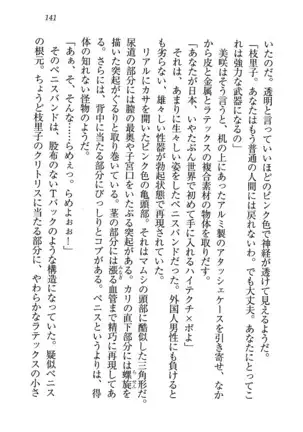 141
いたのだ。透明と言っていいほどのピンク色で神経が透けて見えるようだ。
「枝里子、あなたはもう普通の人間には戻れないわ。でも大丈夫、あなたにとってこ
れは強力な武器になるの」
美咲はそう言うと、机の上にあったアルミ製のアタッシェケースを引き寄せ、中
から皮と金属とラテックスの複合素材の物体を取りだす。
「これはね、あなたが日本、いやたぶん世界で初めて手に入れるハイテクチ×ポよ」
それは、あまりに生々しい姿をしたペニスバンドだった。外国人男性にも負けると
も劣らない、雄々しい性器が勃起状態で再現されていた。
リアルにカサを開いたピンク色の亀頭部。それはマムシの頭部に酷似した三角形だ。
尿道の部分には膣の最奥や子宮口をいたぶる突起がある。カリの直下部分には螺旋を
描いた突起がぐるりと取り巻いている。茎の部分には漲る血管まで精巧に再現してあ
る。さらに、背中に当たる部分にびっしりとコブがある。ペニスというよりは、得
体の知れない怪物のようだ。
「あぁ、そ、そんな……らめぇっ。らめよぉぉ!」
そのペニスバンドは、股布のないTバックのような構造になっていた。疑似ペニス
の根元。ちょうど枝里子のクリトリスに当たる部分に、やわらかなラテックスの小さ